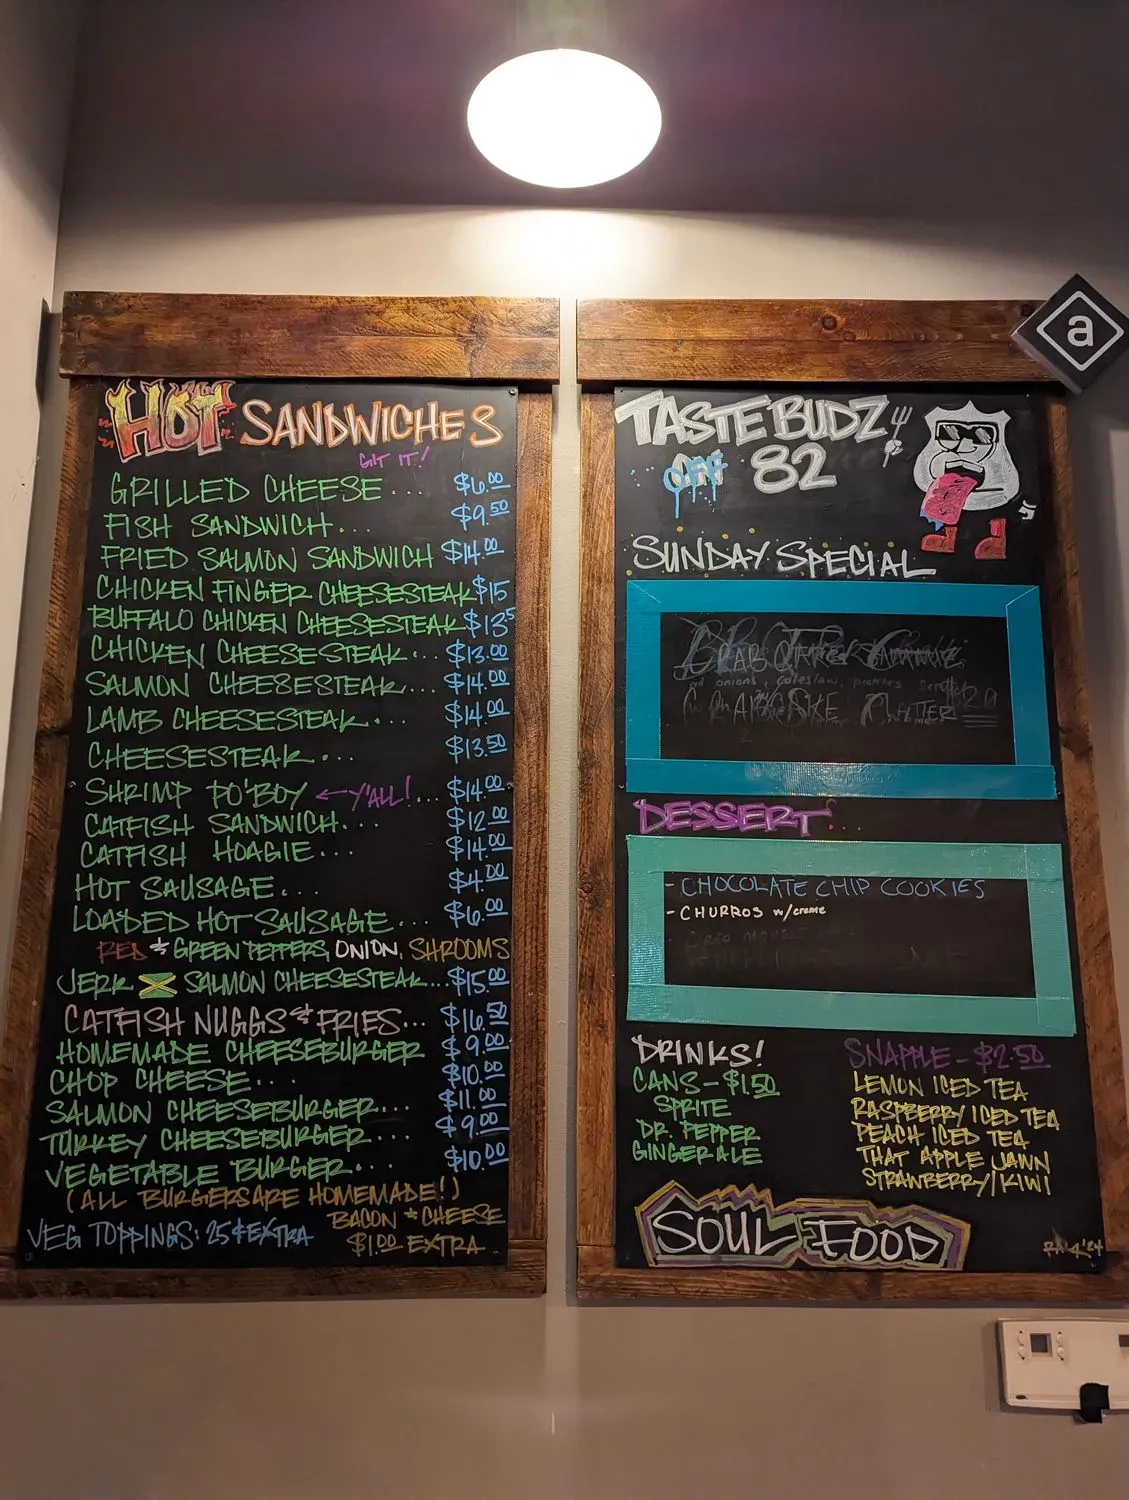 HOT SANDWICHES
GIT IT!
GRILLED CHEESE... $6.00
FISH SANDWICH... $9.50
FRIED SALMON SANDWICH $14.00
CHICKEN FINGER CHEESESTEAK $15
BUFFALO CHICKEN CHEESESTEAK $13.5
CHICKEN CHEESESTEAK... $13.00
SALMON CHEESESTEAK... $14.00
LAMB CHEESESTEAK... $14.00
CHEESESTEAK... $13.50
SHRIMP PO'BOY ← Y'ALL!... $14.00
CATFISH SANDWICH... $12.00
CATFISH HOAGIE... $14.00
HOT SAUSAGE... $4.00
LOADED HOT SAUSAGE... $6.00
RED & GREEN PEPPERS, ONION, SHROOMS
JERK SALMON CHEESESTEAK... $15.00
CATFISH NUGGS & FRIES... $16.50
HOMEMADE CHEESEBURGER $9.00
CHOP CHEESE.... $10.00
SALMON CHEESEBURGER... $11.00
TURKEY CHEESEBURGER... $9.00
VEGETABLE BURGER... $10.00
(ALL BURGERS ARE HOMEMADE!)
VEG TOPPINGS: 25¢ EXTRA
BACON & CHEESE
$1.00 EXTRA
a
TASTE BUDZ
OFF 82
SUNDAY SPECIAL
DESSERT...
- CHOCOLATE CHIP COOKIES
- CHURROS w/creme
DRINKS!
CANS - $1.50
SPRITE
DR. PEPPER
GINGERALE
SNAPPLE - $2.50
LEMON ICED TEA
RASPBERRY ICED TEA
PEACH ICED TEA
THAT APPLE JAWN
STRAWBERRY/KIWI
SOUL FOOD